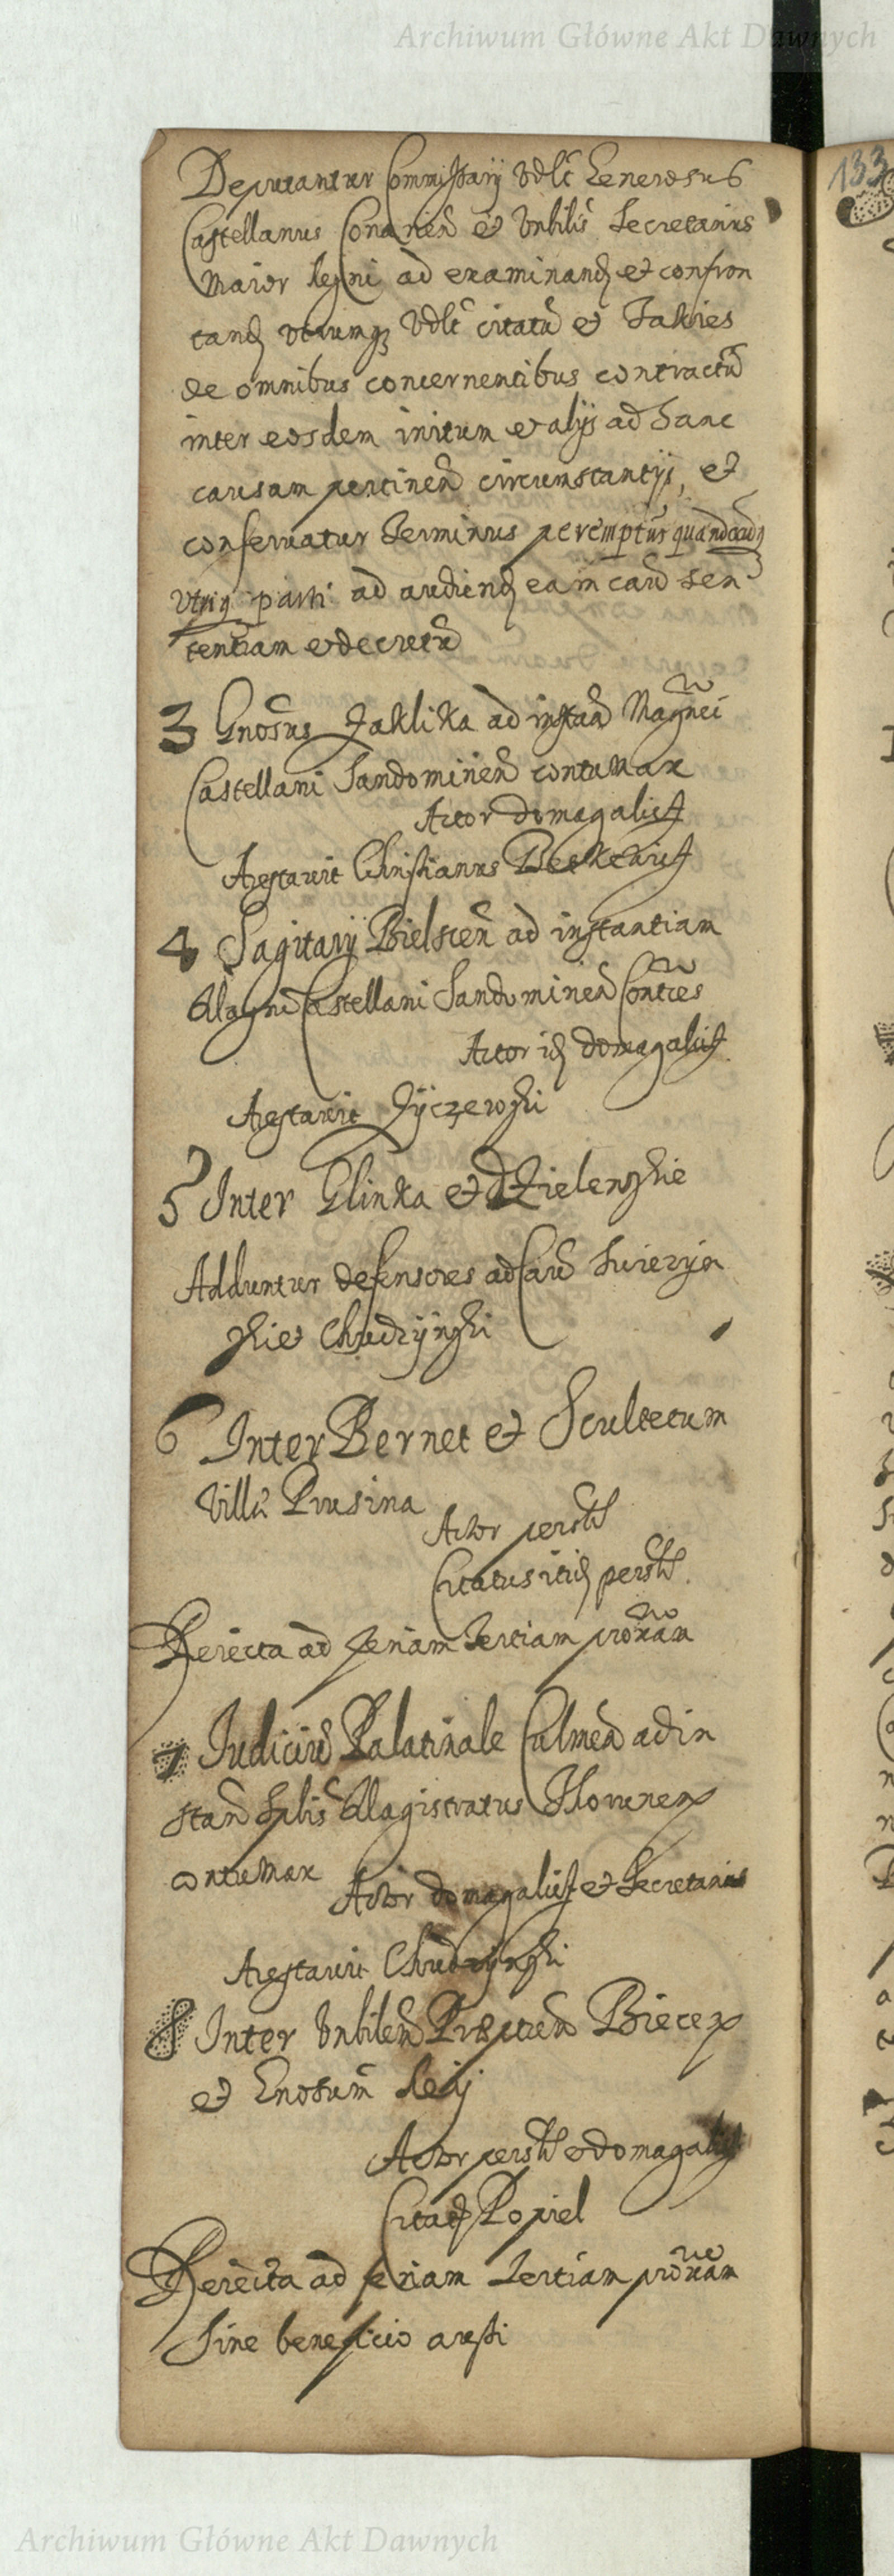 Archiwum Główne Akt Dawnych
133
Deputantur Commissarij Vdlt Generosus
Castellanus Conarien et Vnbilis Secretarius
Maior Regni ad examinand et confron
tand utrumq Vdlt citatu et Jaktes
de omnibus concernentibus contractu
inter eosdem initum et alijs ad hanc
causam pertinen circumstantijs, et
conseruatur Terminus peremptus quandocunq
Vtriq parti ad audiend eam cau sen
tentiam et decretu
3 Gnosus Jaklika ad instan Magnci
Castellani Sandomirien contumax
Actor Domagalist
Arestauit Christianus
4 Sagitarij Bielscen ad instantiam
Magni Castellani Sandomirien Contes
Actor id domagalist
Arestauit Zyczewski
5 Inter Glinka et dZielenskie
Adduntur defensores ad Cau Swierzyn
ski et Chudzynski
6 Inter Bernet et Scultetum
Villa Prusina
Actor persl
Citatus itid persl.
Reiecta ad feriam tertiam proxam
7 Judiciu Palatinale Culmen ad in
stan Splis Magistratus Thorunen
contumax Actor domagalist et Secretarius
Arestauit Chudzynski
8 Inter Vnbilem Biecen
et Gnosum Reij
Actor persl et domagalist
Citat Popiel
Reiecta ad feriam tertiam proxam
Sine beneficio aresti
Archiwum Główne Akt Dawnych